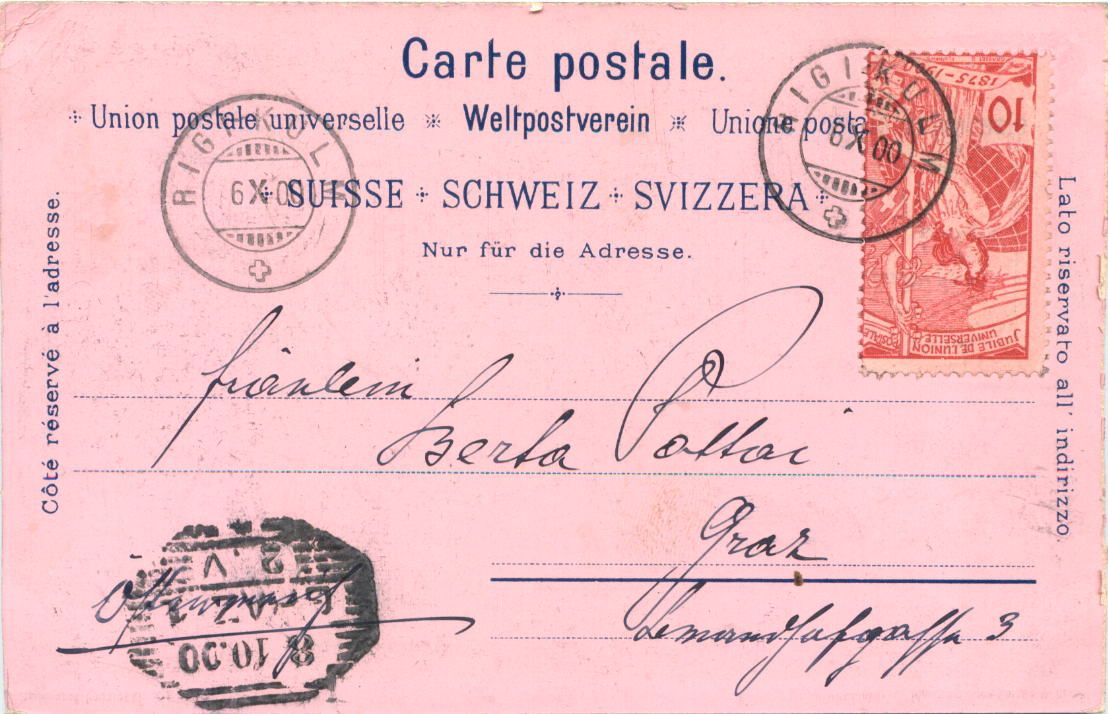 Carte postale.
Union postale universelle * Weltpostverein * Unione posta
SUISSE + SCHWEIZ + SVIZZERA
Nur für die Adresse.
Côté réservé à l'adresse.
Lato riservato all' indirizzo.
RIGI-KULM
6 X 00
RIGI-KULM
6 X 00
1875-1
10
JUBILÉ DE L'UNION
POSTALE UNIVERSELLE
Fräulein
Berta Pottai
Graz
3
8 10.00